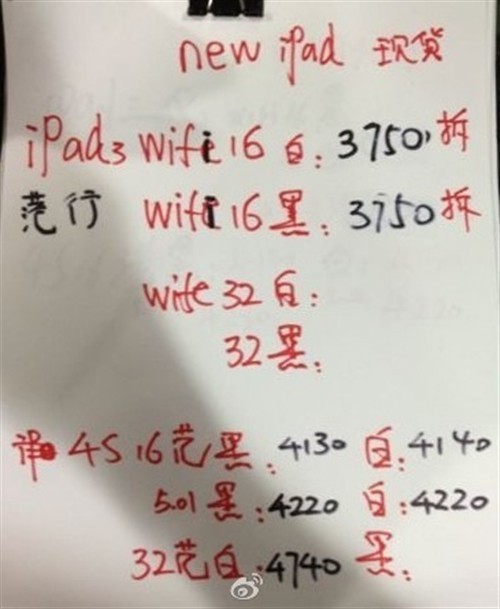 new iPad 现货
iPad3 wifi 16 白: 3750 拆
范行 wifi 16 黑: 3750 拆
wife 32 白:
32 黑:
4S 16范黑: 4130 白: 4140
5.01 黑: 4220 白: 4220
32范白: 4740 黑: